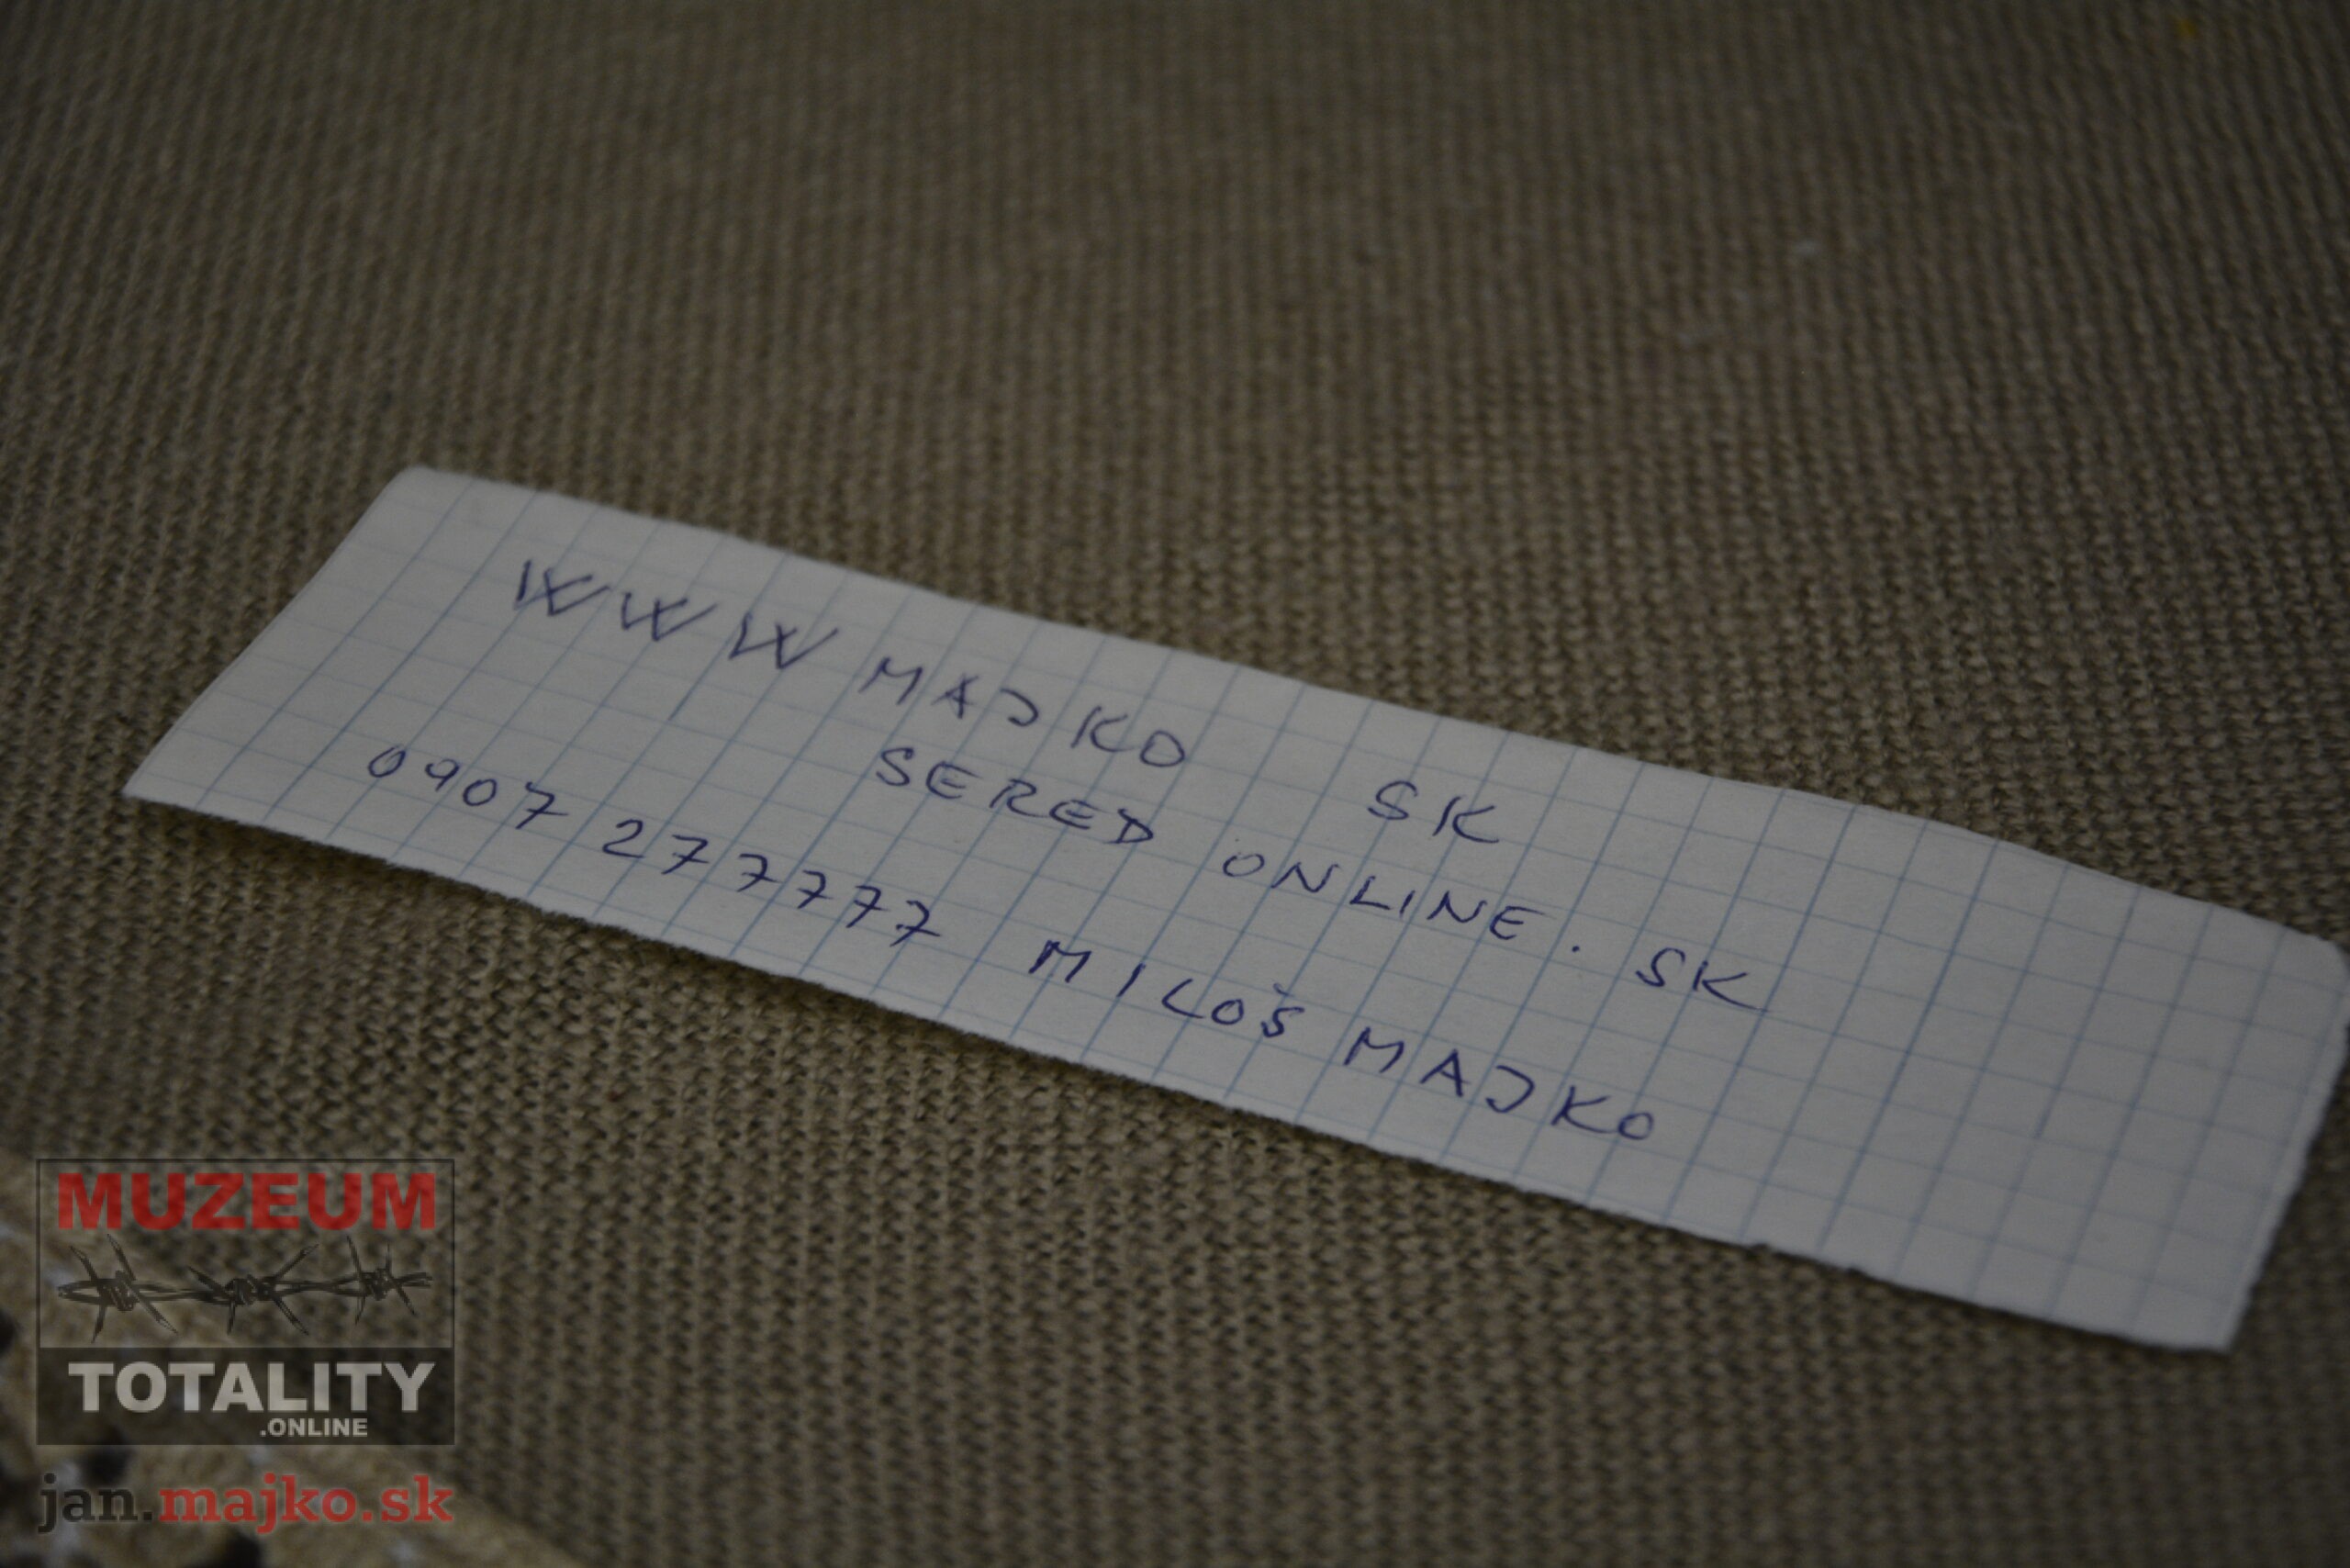 WWW MAJKO SK
SERED ONLINE. SK
0907 277777 MILOŠ MAJKO
MUZEUM
TOTALITY
.ONLINE
jan.majko.sk